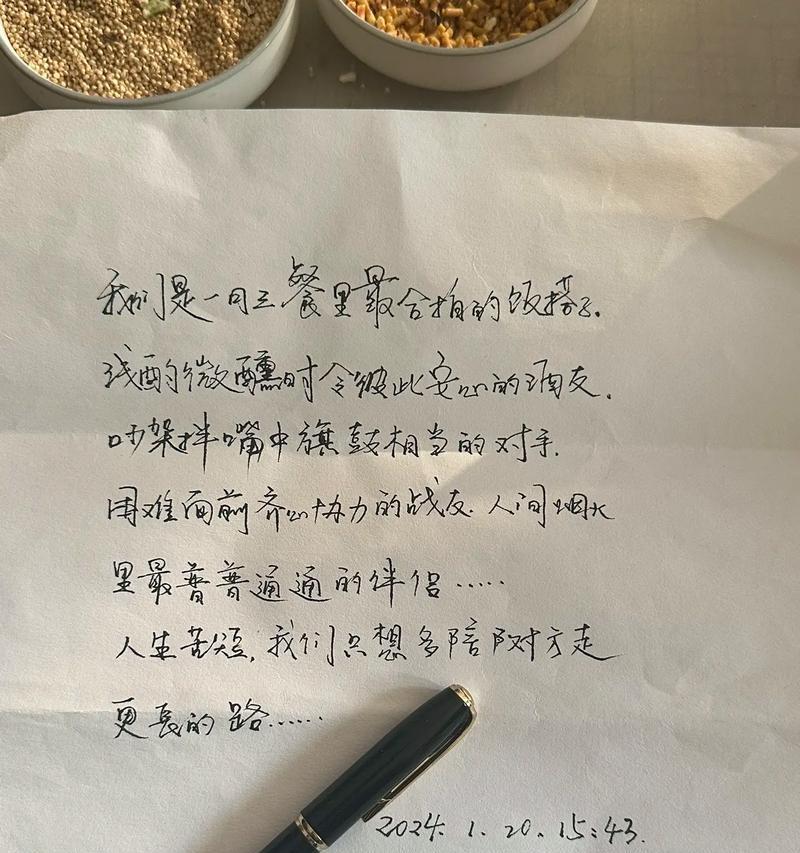 我们是一日三餐里最合拍的饭搭子.
浅酌微醺时令彼此安心的酒友.
吵架拌嘴中旗鼓相当的对手.
困难面前齐心协力的战友.人间烟火
里最普普通通的伴侣……
人生苦短,我们只想多陪陪对方走
更长的路……
2024.1.20.15:43.